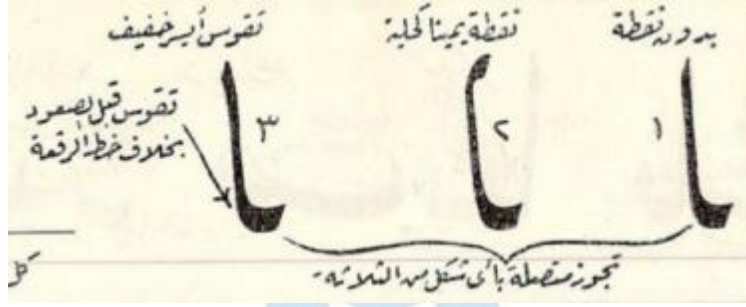 بدون نقطة
نقطة يمينا كحلية
تقوس أيسر خفيف
١
٢
٣
تقوس قبل الصعود
بخلاف خط الرقعة
تجوز متصلة بأى شكل من الثلاثة